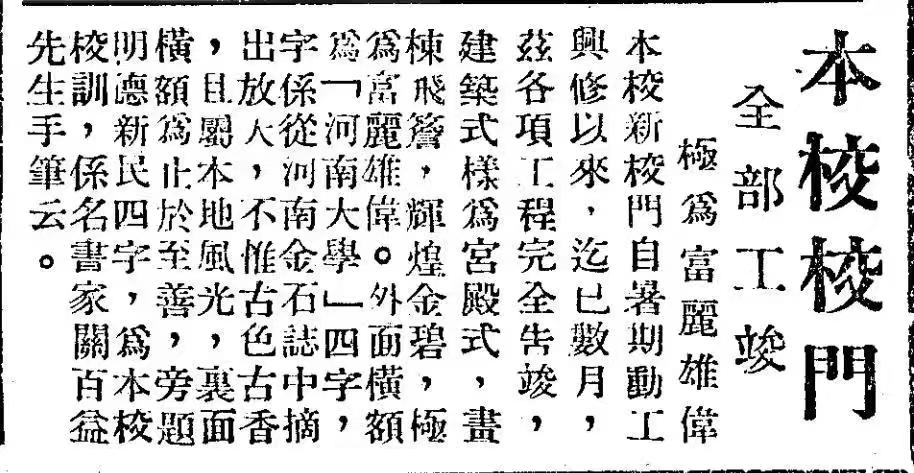 本校校門
全部工竣
極爲富麗雄偉
本校新校門自暑期動工
興修以來，迄已數月，
茲各項工程完全告竣，
建築式樣爲宮殿式，畫
棟飛簷，輝煌金碧，極
爲富麗雄偉。外面橫額
爲「河南大學」四字，
字係從河南金石誌中摘
出放大，不惟古色古香
，且屬本地風光，裏面
橫額爲止於至善，旁題
明德新民四字，爲本校
校訓，係名書家關百益
先生手筆云。